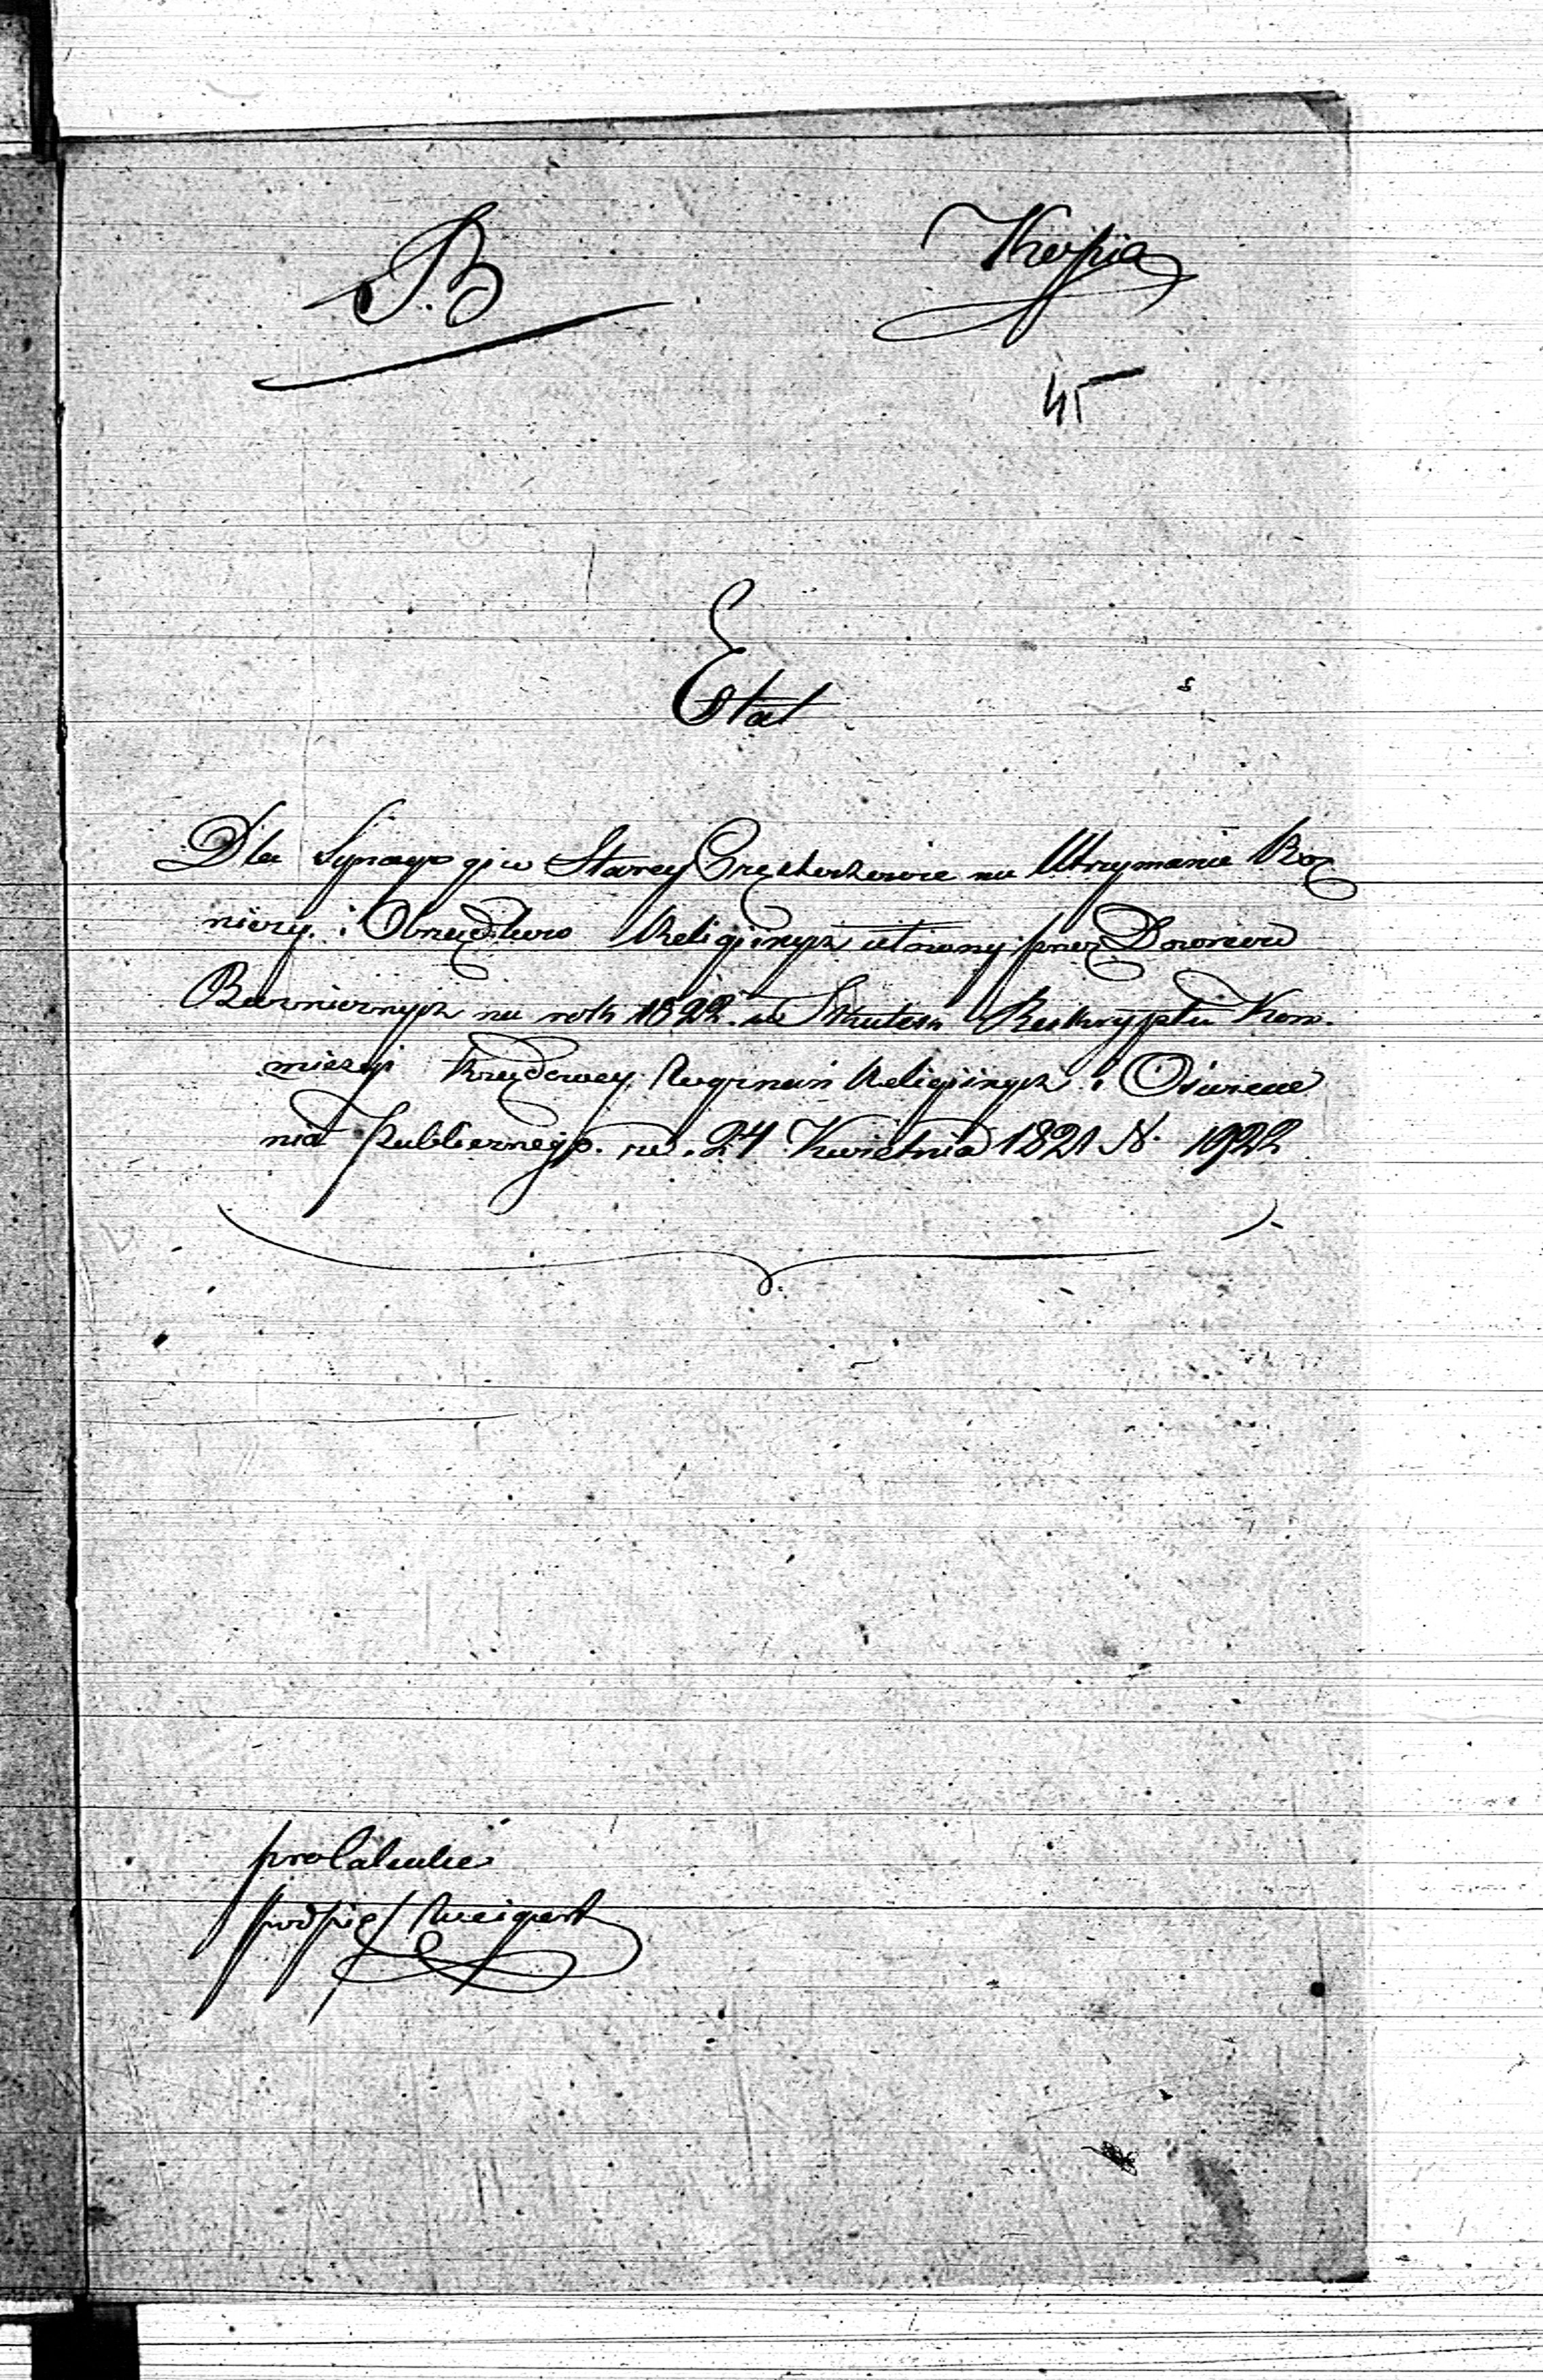 B
Kopia
45
Etat
Dla Synagogi w Starey Częstochowie na Utrzymanie Boż
niczy i Obrządków Religijnych utworzony przez Dozorców
Bożnicznych na rok 1822. w Skutek Reskryptu Kom¬
missyi Rządowey Wyznań Religijnych i Oświece
nia Publicznego. z d. 24 Kwietnia 1821 N. 1922
pro Calculi
podpis